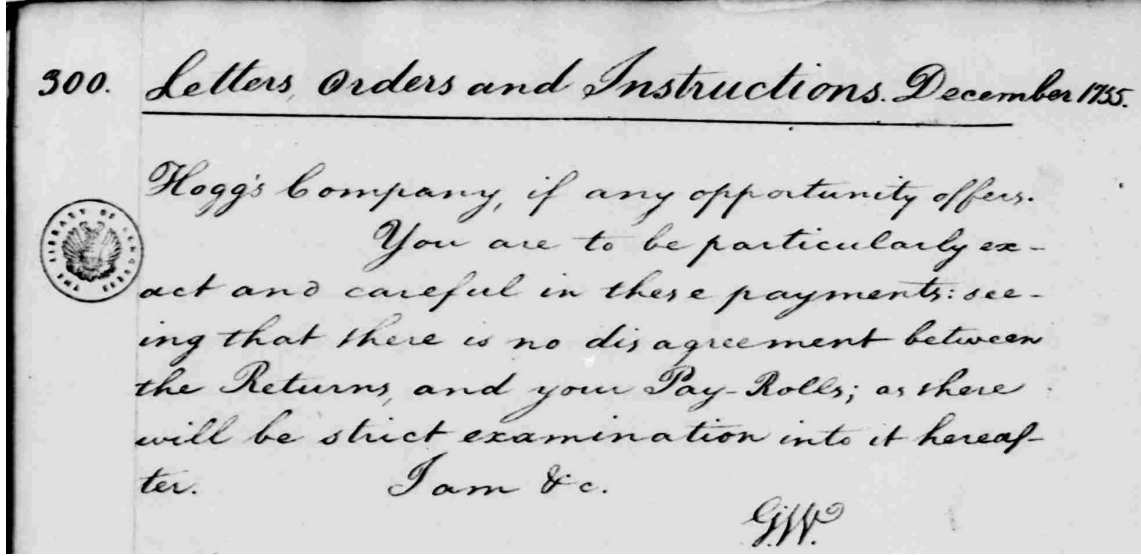 300. Letters, Orders and Instructions. December 1755.
Hogg's Company, if any opportunity offers.
You are to be particularly ex-
act and careful in these payments: see-
ing that there is no disagreement between
the Returns, and your Pay-Rolls; as there
will be strict examination into it hereaf-
ter. I am &c.
G.W.
THE LIBRARY OF CONGRESS